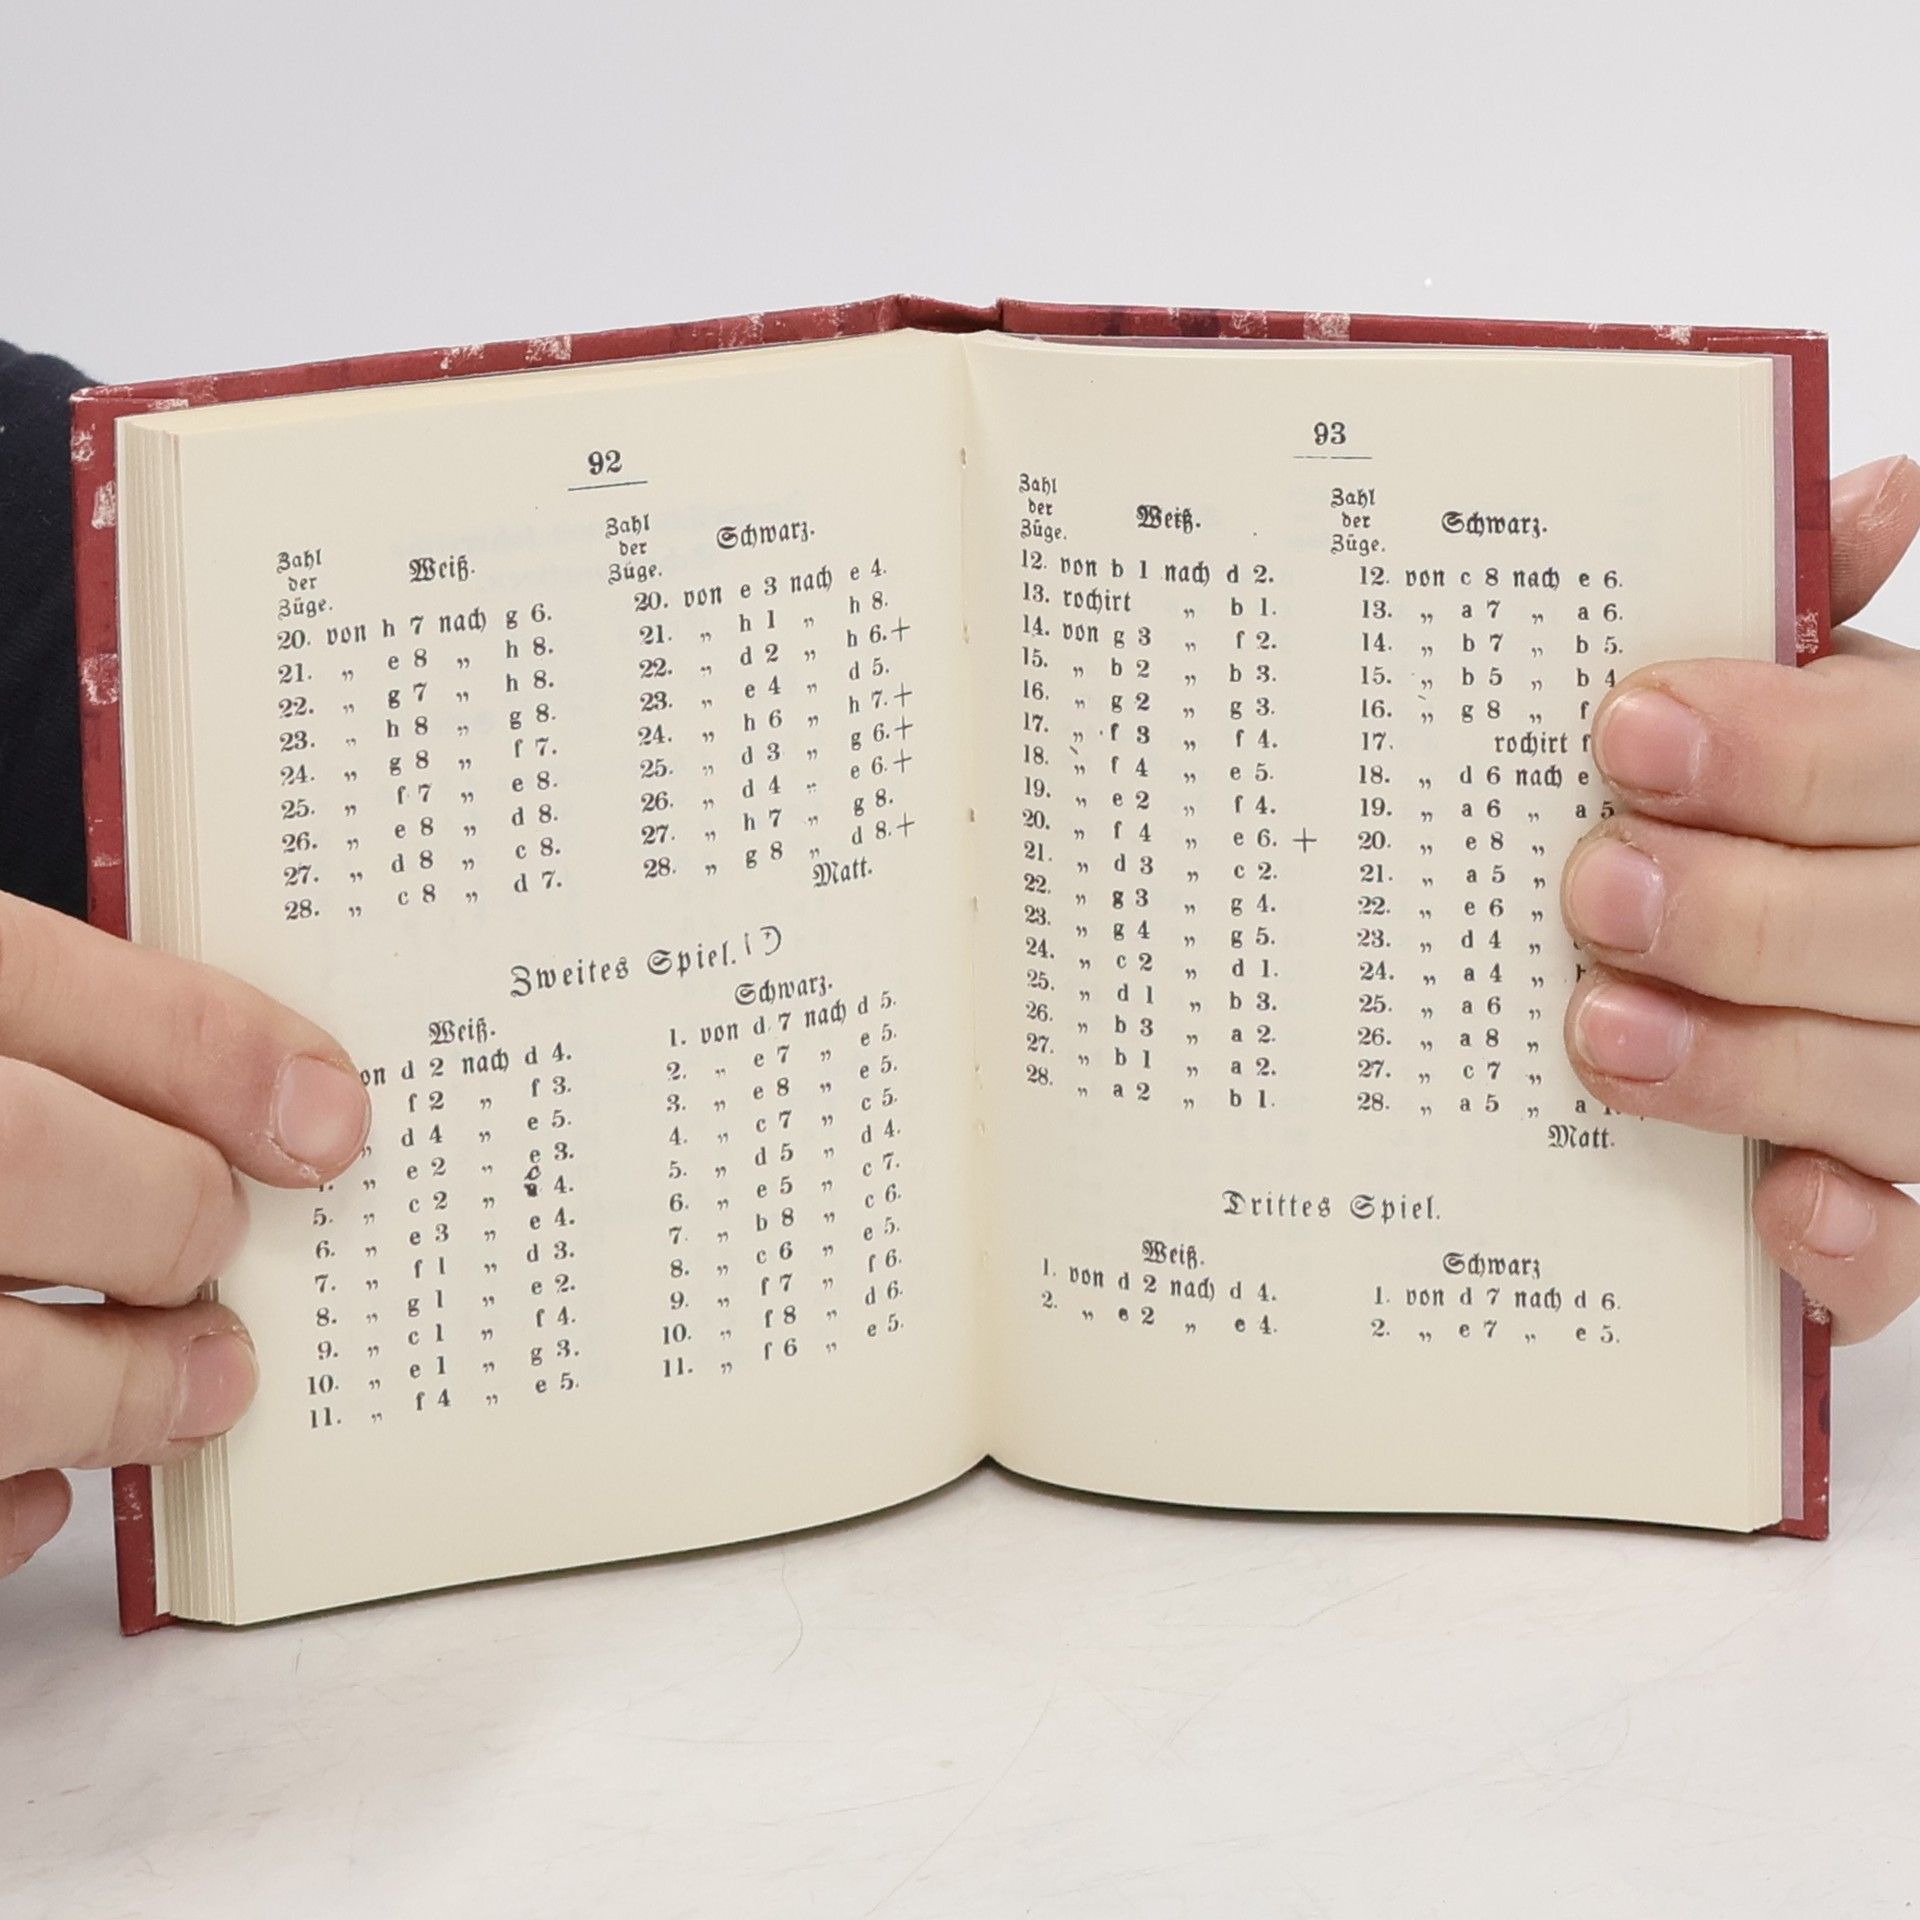 92
Zahl der Züge. Weiß. Zahl der Züge. Schwarz.
20. von h 7 nach g 6. 20. von e 3 nach e 4.
21. „ e 8 „ h 8. 21. „ h 1 „ h 8.
22. „ g 7 „ h 8. 22. „ d 2 „ h 6.+
23. „ h 8 „ g 8. 23. „ e 4 „ d 5.
24. „ g 8 „ f 7. 24. „ h 6 „ h 7.+
25. „ f 7 „ e 8. 25. „ d 3 „ g 6.+
26. „ e 8 „ d 8. 26. „ d 4 „ e 6.+
27. „ d 8 „ c 8. 27. „ h 7 „ g 8.
28. „ c 8 „ d 7. 28. „ g 8 „ d 8.+
Matt.
Zweites Spiel.
Weiß. Schwarz.
d 2 nach d 4. 1. von d 7 nach d 5.
f 2 „ f 3. 2. „ e 7 „ e 5.
„ d 4 „ e 5. 3. „ e 8 „ e 5.
„ e 2 „ e 3. 4. „ c 7 „ c 5.
5. „ c 2 „ c 4. 5. „ d 5 „ d 4.
6. „ e 3 „ e 4. 6. „ e 5 „ c 7.
7. „ f 1 „ d 3. 7. „ b 8 „ c 6.
8. „ g 1 „ e 2. 8. „ c 6 „ e 5.
9. „ c 1 „ f 4. 9. „ f 7 „ f 6.
10. „ e 1 „ g 3. 10. „ f 8 „ d 6.
11. „ f 4 „ e 5. 11. „ f 6 „ e 5.
93
Zahl der Züge. Weiß. Zahl der Züge. Schwarz.
12. von b 1 nach d 2. 12. von c 8 nach e 6.
13. rochirt „ b 1. 13. „ a 7 „ a 6.
14. von g 3 „ f 2. 14. „ b 7 „ b 5.
15. „ b 2 „ b 3. 15. „ b 5 „ b 4
16. „ g 2 „ g 3. 16. „ g 8 „ f
17. „ f 3 „ f 4. 17. rochirt f
18. „ f 4 „ e 5. 18. „ d 6 nach e
19. „ e 2 „ f 4. 19. „ a 6 „ a 5
20. „ f 4 „ e 6. + 20. „ e 8 „
21. „ d 3 „ c 2. 21. „ a 5 „
22. „ g 3 „ g 4. 22. „ e 6 „
23. „ g 4 „ g 5. 23. „ d 4 „
24. „ c 2 „ d 1. 24. „ a 4 „
25. „ d 1 „ b 3. 25. „ a 6 „
26. „ b 3 „ a 2. 26. „ a 8 „
27. „ b 1 „ a 2. 27. „ c 7 „
28. „ a 2 „ b 1. 28. „ a 5 „ a
Matt.
Drittes Spiel.
Weiß. Schwarz
1. von d 2 nach d 4. 1. von d 7 nach d 6.
2. „ e 2 „ e 4. 2. „ e 7 „ e 5.